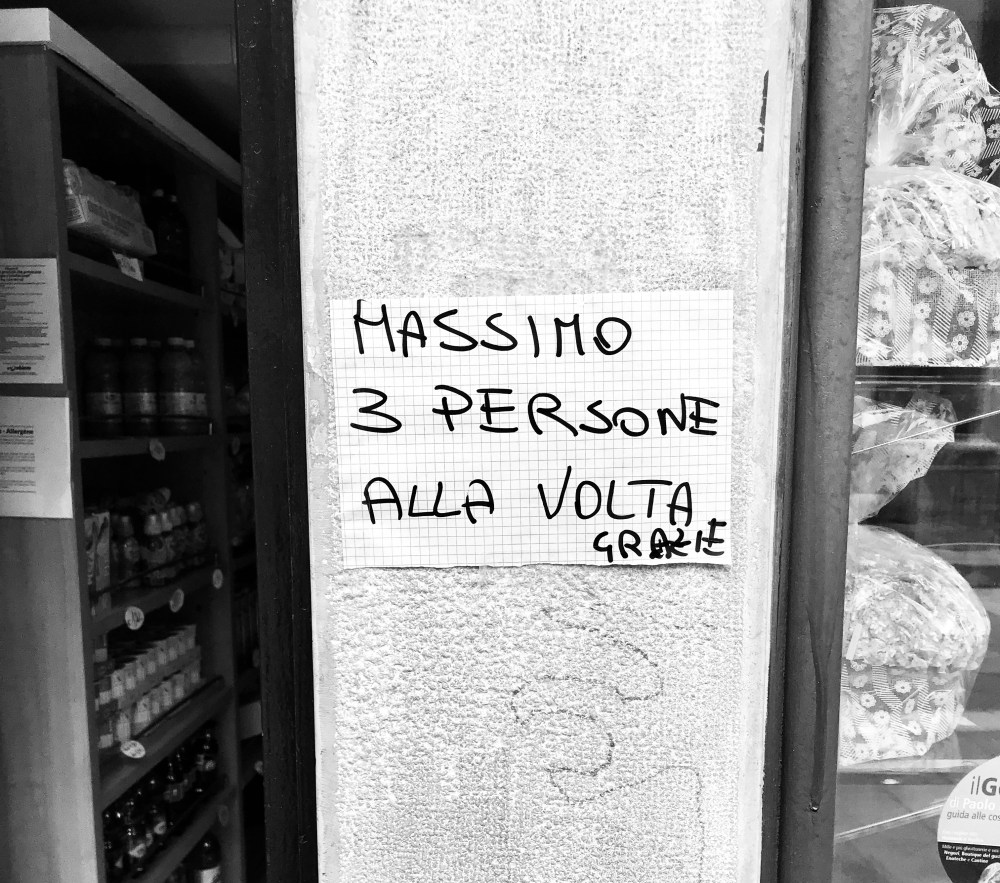 MASSIMO
3 PERSONE
ALLA VOLTA
GRAZIE
- Allergène
ilG
di Paolo
guida alle cos